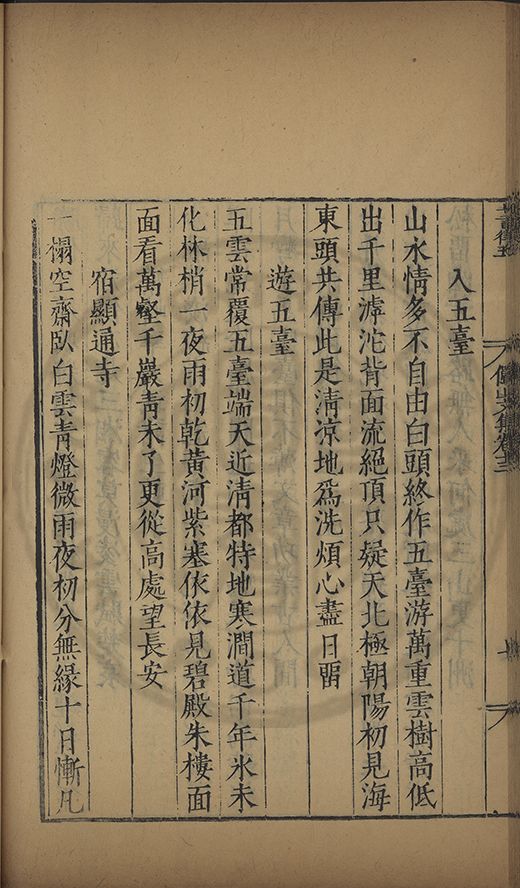 入五臺
山水情多不自由白頭終作五臺游萬重雲樹高低
出千里滹沱背面流絕頂只疑天北極朝陽初見海
東頭共傳此是清凉地爲洗煩心盡日畱
遊五臺
五雲常覆五臺端天近清都特地寒澗道千年氷未
化林梢一夜雨初乾黃河紫塞依依見碧殿朱樓面
面看萬壑千巖青未了更從高處望長安
宿顯通寺
一榻空齋臥白雲青燈微雨夜初分無緣十日慚凡